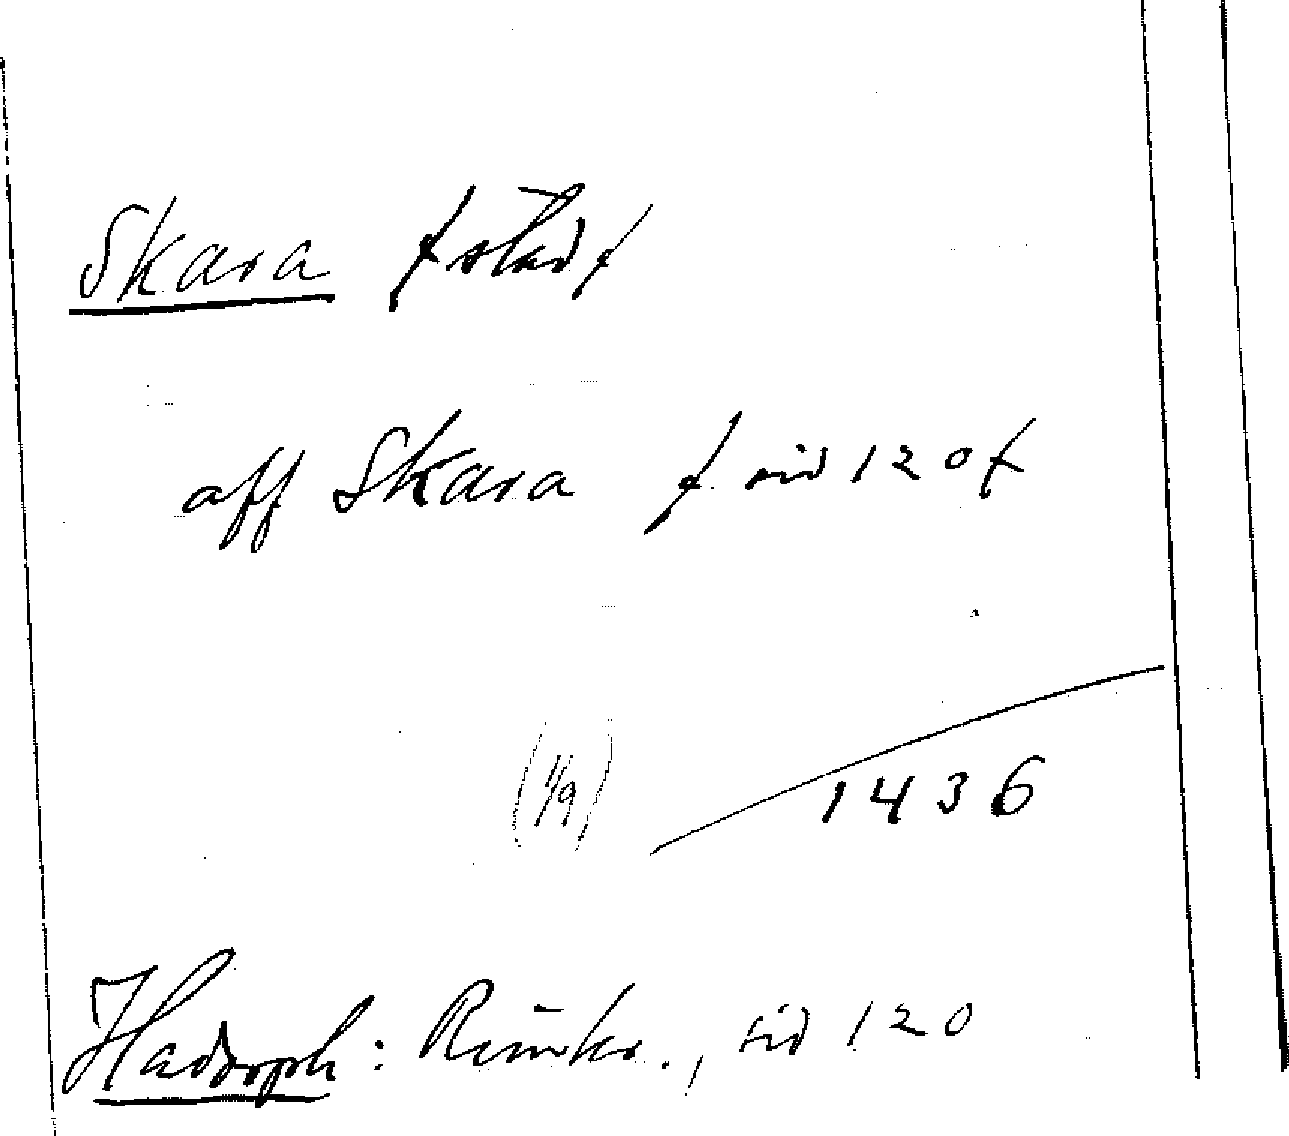 Skara /stad/
aff Skara /sid 120/
(1/9) 1436
Hadorph: Rimkr., sid 120